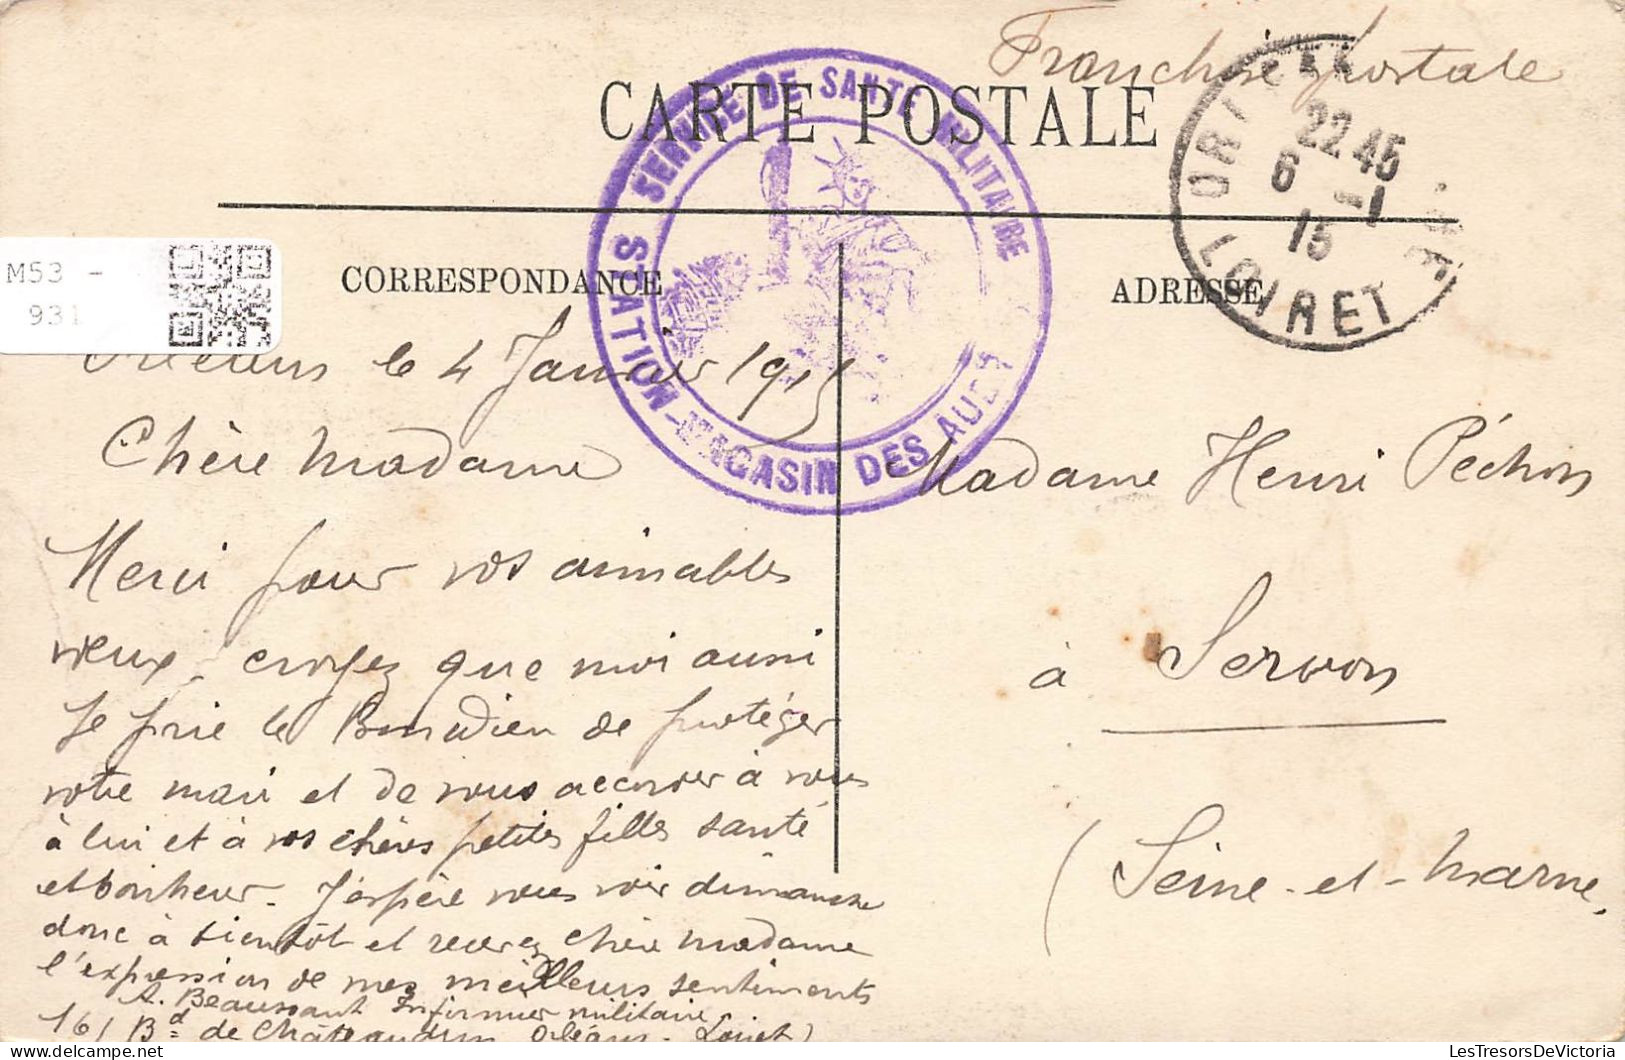 Franchise postale
CARTE POSTALE
SERVICE DE SANTÉ MILITAIRE
STATION-MAGASIN DES AUBR
ORLÉANS
22 45
6 -1
15
LOIRET
M53 -
931
CORRESPONDANCE
ADRESSE
Orléans le 4 Janvier 1915
Chère Madame
Merci pour vos aimables
vœux, croyez que moi aussi
Je prie le Bon Dieu de protéger
votre mari et de vous accorder à vous
à lui et à vos chères petites filles santé
et bonheur. J'espère vous voir dimanche
donc à bientôt et recevez chère madame
l'expression de mes meilleurs sentiments
A. Beaussant Infirmier militaire
161 Bd de Châteaudun Orléans. Loiret)
Madame Henri Péchon
à Servon
(Seine-et-Marne.
LesTresorsDeVictoria